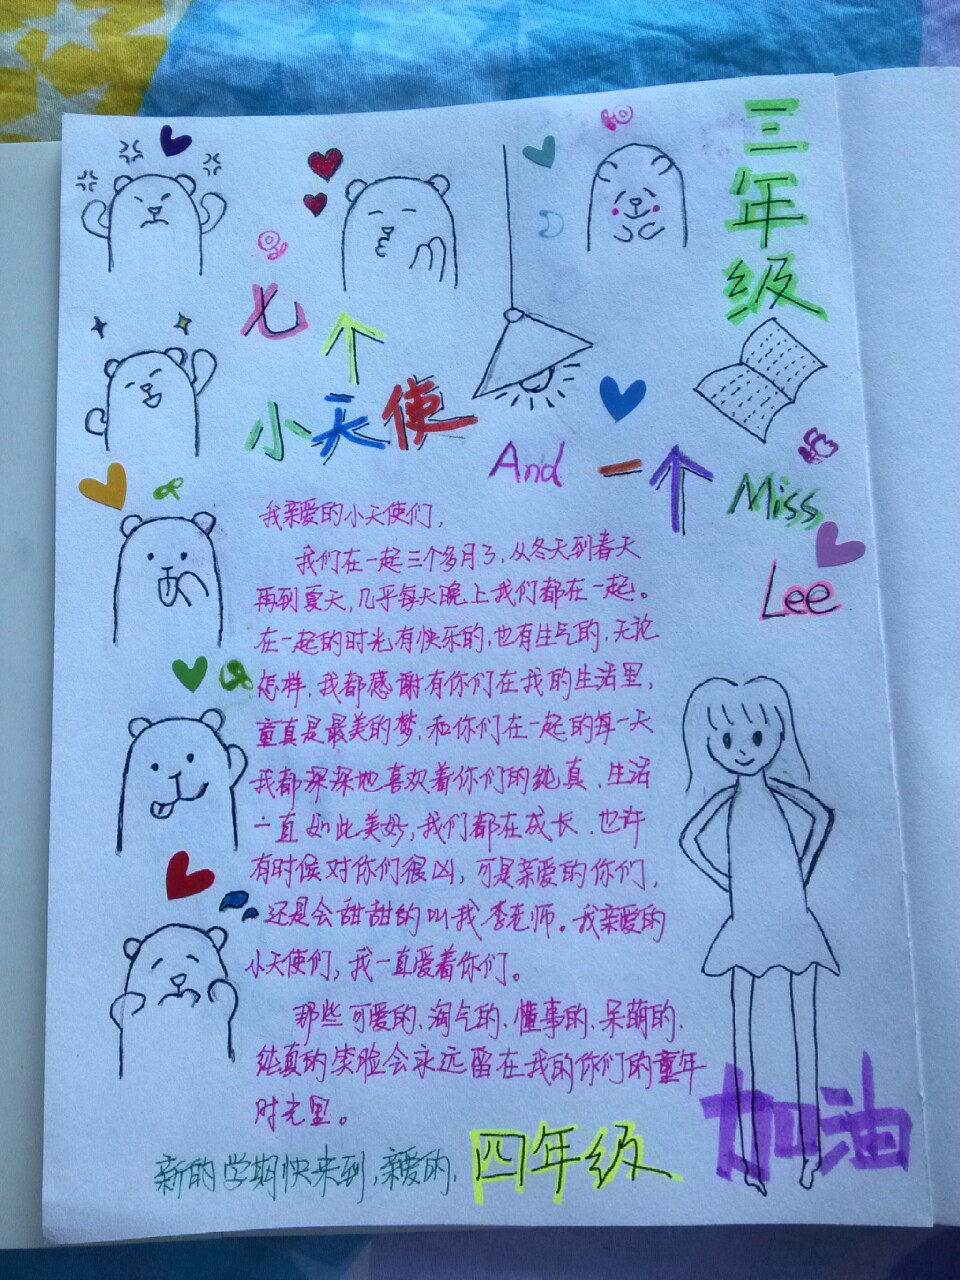 三年级
七个
小天使
And 一个 Miss
Lee
我亲爱的小天使们，
我们在一起三个多月了，从冬天到春天
再到夏天，几乎每天晚上我们都在一起。
在一起的时光有快乐的，也有生气的，无论
怎样，我都感谢有你们在我的生活里，
童真是最美的梦，和你们在一起的每一天
我都深深地喜欢着你们的纯真、生活
一直如此美好，我们都在成长、也许
有时候对你们很凶，可是亲爱的你们，
还是会甜甜的叫我李老师。我亲爱的
小天使们，我一直爱着你们。
那些可爱的、淘气的、懂事的、呆萌的、
纯真的笑脸会永远留在我的你们的童年
时光里。
新的学期快来到，亲爱的，四年级 加油